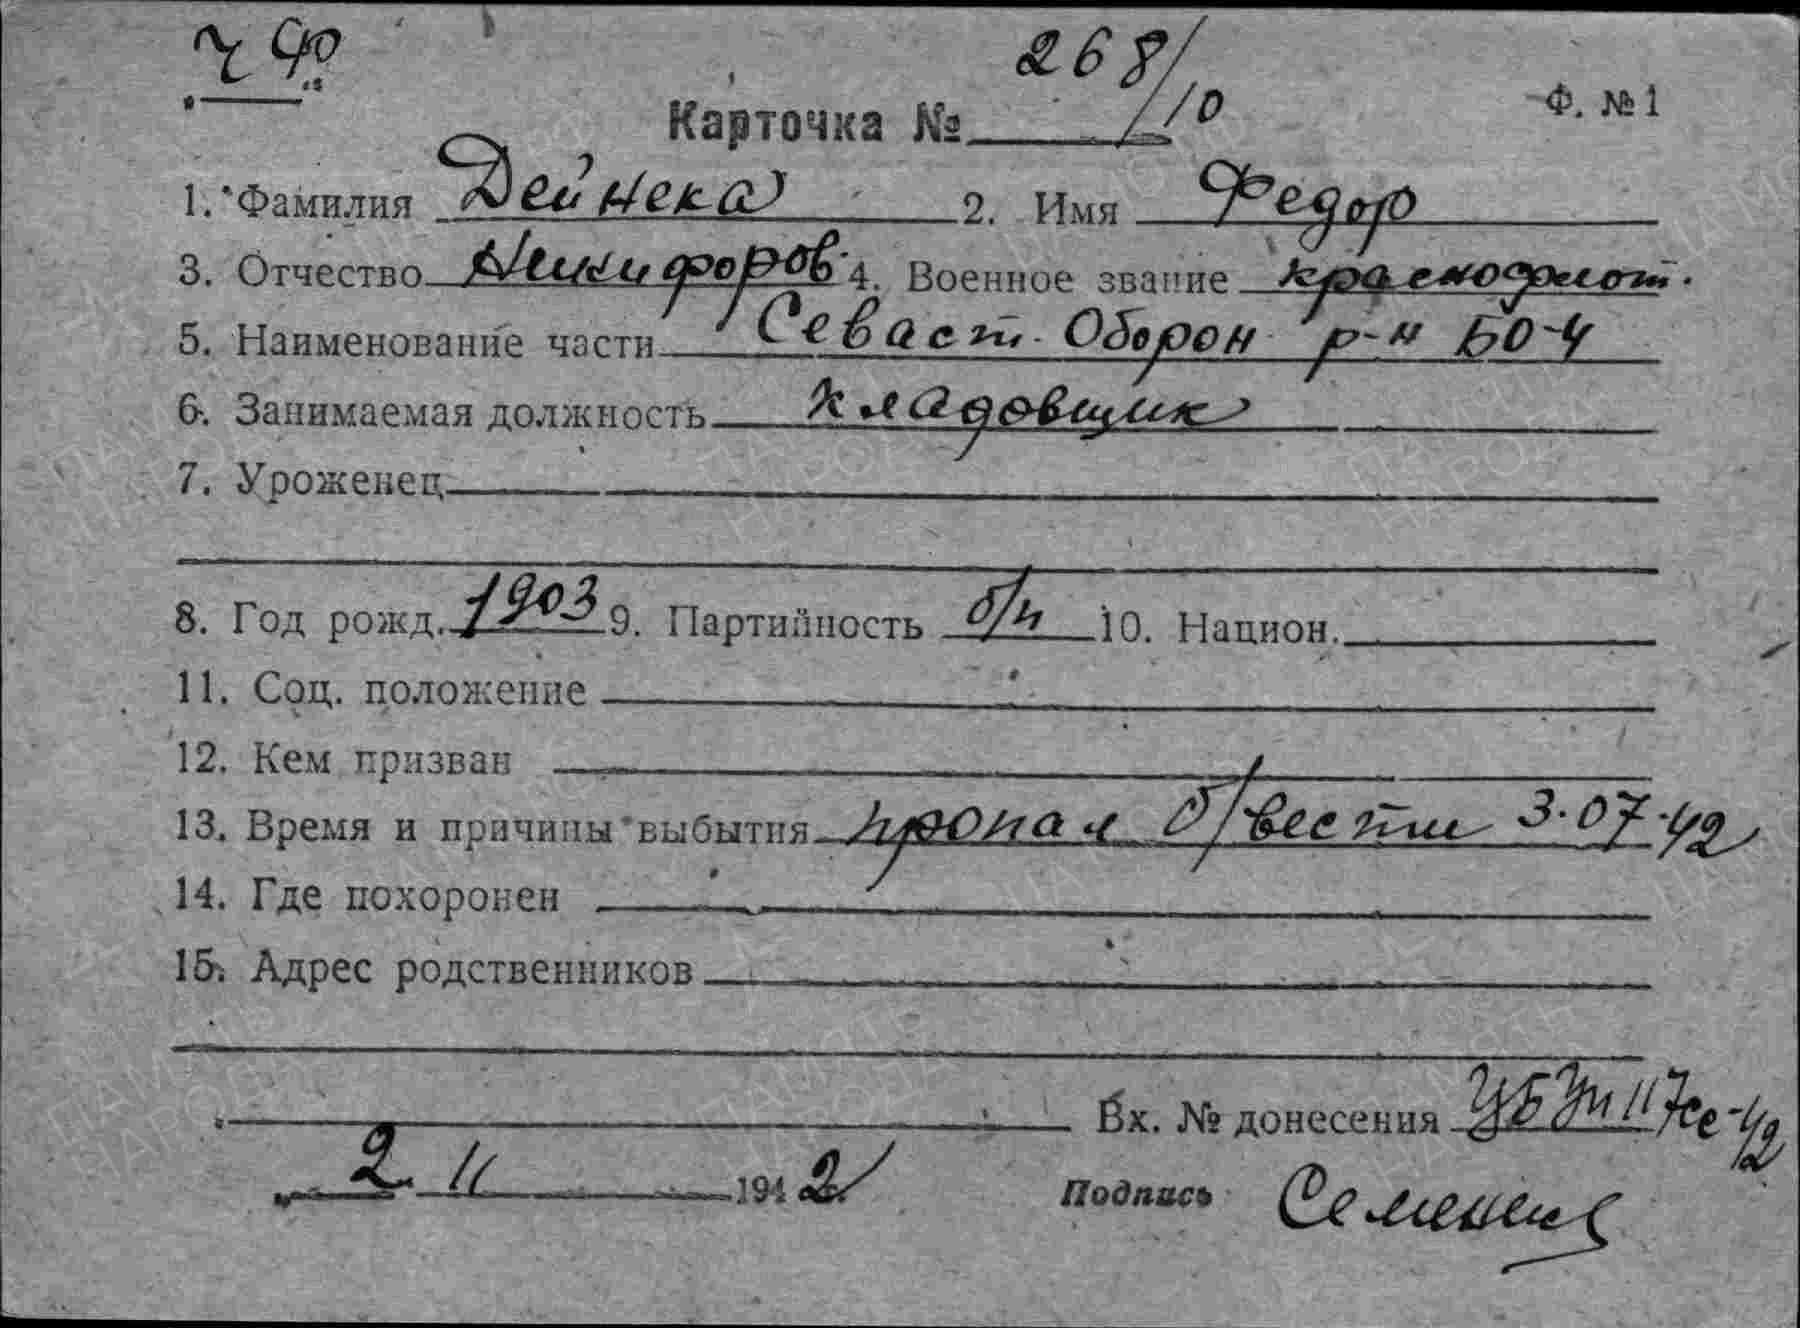 ЧФ
268/10
Карточка № Ф. № 1
1. Фамилия Дейнека 2. Имя Федор
3. Отчество Никифоров. 4. Военное звание краснофлот.
5. Наименование части Севаст. Оборон р-н БО-4
6. Занимаемая должность кладовщик
7. Уроженец
8. Год рожд. 1903 9. Партийность б/п 10. Национ.
11. Соц. положение
12. Кем призван
13. Время и причины выбытия пропал б/вести 3.07.42
14. Где похоронен
15. Адрес родственников
Вх. № донесения 117сс-42
2. 11 1942
Подпись
ПАМЯТЬ НАРОДА